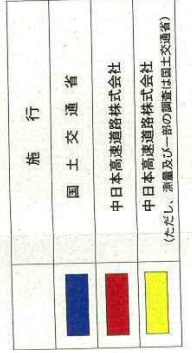 施行
国土交通省
中日本高速道路株式会社
中日本高速道路株式会社
(ただし、測量及び一部の調査は国土交通省)